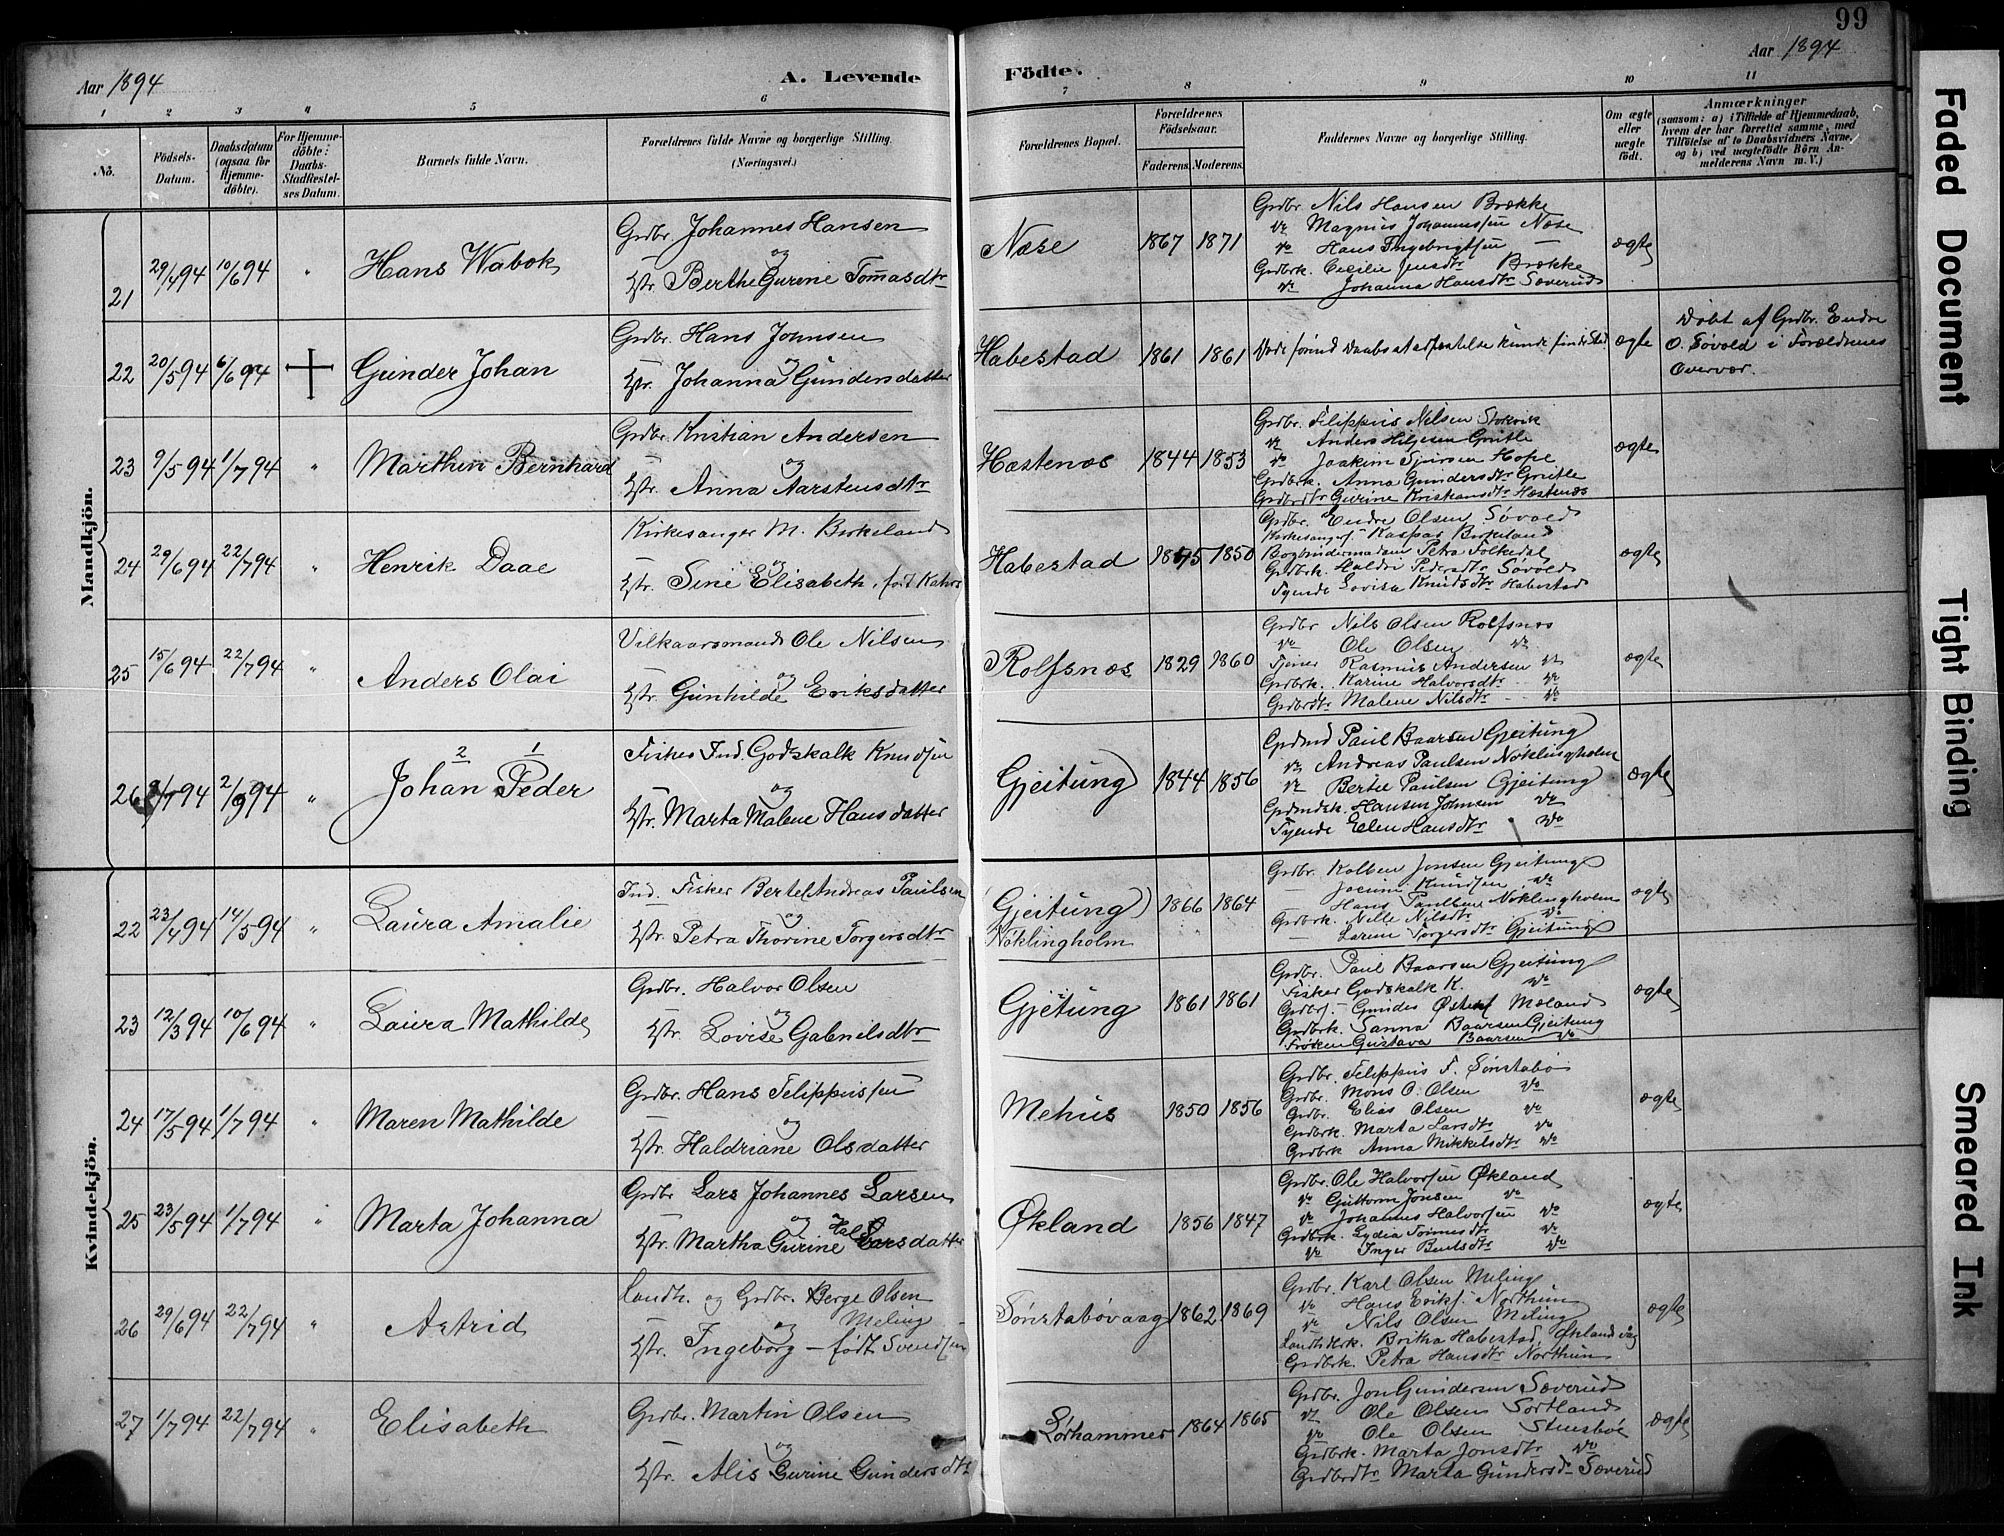 99
Aar 1894
A. Levende
Födte.
Aar 1894
1 2 3 4 5 6 7 8 9 10 11
No.
Födsels-Datum.
Daabsdatum (ogsaa for Hjemmedöbte).
For Hjemmedöbte: Daabs-Stadfæstelses Datum.
Barnets fulde Navn.
Forældrenes fulde Navne og borgerlige Stilling. (Næringsvei.)
Forældrenes Bopæl.
Forældrenes Födselsaar.
Faderens. Moderens.
Faddernes Navne og borgerlige Stilling.
Om ægte eller uægte födt.
Anmærkninger
(saasom: a) i Tilfælde af Hjemmedaab, hvem der har forrettet samme, med Tilföielse af to Daabsvidners Navne, og b) ved uægtefödte Börn Anmelderens Navn m. V.)
Mandkjön.
21 29/4 94 10/6 94 " Hans Wabok
Grdbr. Johannes Hansen
og
Hstr. Berthe Gurine Tomasdtr
Næse 1867 1871
Grdbr. Nils Hansen Brække
do Magnus Johannessen Næse
do Hans Ingebrigtsen —
Grdbrk. Cecilie Jensdtr Brække
do Johanna Hansdtr Sæverud
ægte
22 20/5 94 6/6 94 Gunder Johan
Grdbr. Hans Johnsen
og
Hstr. Johanna Gundersdatter
Habestad 1861 1861
Døde forind Daabsstadfæstelse kunde finde Sted
ægte
Døbt af Grdbr. Endre
O. Søvold i Forældrenes
Overvær.
23 9/5 94 1/7 94 " Marthin Bernhard
Grdbr. Kristian Andersen
og
Hstr. Anna Aarstensdtr
Hæstenæs 1844 1853
Grdbr. Filippus Nilsen Stokvik
do Anders Helgesen Gritle
do Joakim Sjursen Hope
Grdbrk. Anna Gundersdtr Gritle
Grdbrdtr Gurine Kristiansdtr Hæstenæs
ægte
24 29/6 94 22/7 94 " Henrik Daae
Kirkesanger M. Birkeland
og
Hstr. Sine Elisabeth, født Kahrs
Habestad 1850
Grdbr. Endre Olsen Søvold
Kirkesangerf. Kaspar Birkeland
Bogbindermadam Petra Folkedal
Grdbrk. Haldri Pedersdtr Søvold
Tyende Lovisa Knudsdtr Habestad
ægte
25 15/6 94 22/7 94 " Anders Olai
Vilkaarsmand Ole Nilsen
og
Hstr. Gunhilde Eriksdatter
Rolfsnæs 1829 1860
Grdbr Nils Olsen Rolfsnæs
do Ole Olsen do
Tjener Rasmus Andersen do
Grdbrk. Karine Halvorsdtr do
Grdbrdtr Malene Nilsdtr do
ægte
2 1
26 /7 94 2/9 94 " Johan Peder
Fisker Ind. Godskalk Knudsen
og
Hstr. Marta Malene Hansdatter
Gjeitung 1844 1856
Grdmd Paul Baarsen Gjeitung
do Andreas Paulsen Nøklingholm
do Bertel Paulsen Gjeitung
Grdmdsk. Hansen Johnsen do
Tyende Elen Hansdtr do
ægte
Kvindekjön.
22 23/4 94 14/5 94 " Laura Amalie
Ind. Fisker Bertel Andreas Paulsen
og
Hstr. Petra Thorine Torgersdtr
Gjeitung)
Nøklingholm
1866 1864
Grdbr. Kolben Jonsen Gjeitung
— Knudsen do
Hans Paulsen Nøklingholm
Grdbrk. Nille Nilsdtr do
— Larine Torgersdtr Gjeitung
ægte
23 12/3 94 10/6 94 " Laura Mathilde
Grdbr. Halvor Olsen
og
Hstr. Lovise Gabrielsdtr
Gjetung 1861 1861
Grdbr. Paul Baarsen Gjeitung
Fisker Godskalk K. do
Grdbrf. Gunder Mæland
Grdbrk. Sanna Baarsen Gjeitung
Frøken Gustava Baarsen do
ægte
24 17/5 94 1/7 94 " Maren Mathilde
Grdbr. Hans Filippussen
og
Hstr. Haldriane Olsdatter
Mehus 1850 1856
Grdbr. Filippus F. Sønstabø
Grdbr. Mons O. Olsen do
Grdbr. Elias Olsen do
Grdbrk. Marta Larsdtr do
Grdbrk Anna Mikkelsdtr do
ægte
25 23/5 94 1/7 94 " Marta Johanna
Grdbr Lars Johannes Larsen
og
Hstr. Martha Gurine datter
Økland 1856 1847
Grdbr. Ole Halvorsen Økland
do Guttorm Jonsen do
do Johannes Halvorsen do
Grdbrk. Lydia Tønnesdtr do
do Inger Bentsdtr do
ægte
26 29/6 94 22/7 94 " Astrid
Landh. og Grdbr. Berge Olsen
og Meling
Hstr. Ingeborg — født Svendsen
Sønstabøvaag 1862 1869
Grdbr. Karl Olsen Meling
do Hans Eriks. Northun
do Nils Olsen Meling
Landhdrk. Britha Habestad, Øklandsvåg
Grdbrk. Petra Hansdtr Northun
ægte
27 1/7 94 22/7 94 " Elisabeth
Grdbr. Martin Olsen
og
Hstr. Alis Gurine Gundersdtr
Lørhammer 1864 1865
Grdbr. Jon Gundersen Sæverud
do Ole Olsen Sortland
do Ole Olsen Stensbø
Grdbrk. Marta Jonsdtr do
Grdbrdtr Marta Gundersd. Sæverud
ægte
Faded Document
Tight Binding
Smeared Ink